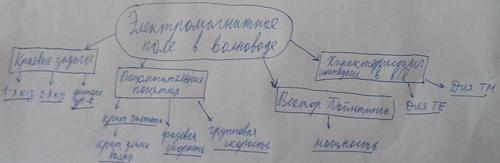 Электромагнитное
поле в волноводе
Краевые задачи
1-я КЗ 2-я КЗ
Вспомогательные
понятия
Крит. частота
Крит. длина
волны
фазовая
скорость
групповая
скорость
Вектор Пойнтинга
мощность
Характеристич.
импеданс в В/В
Для TE
Для TM